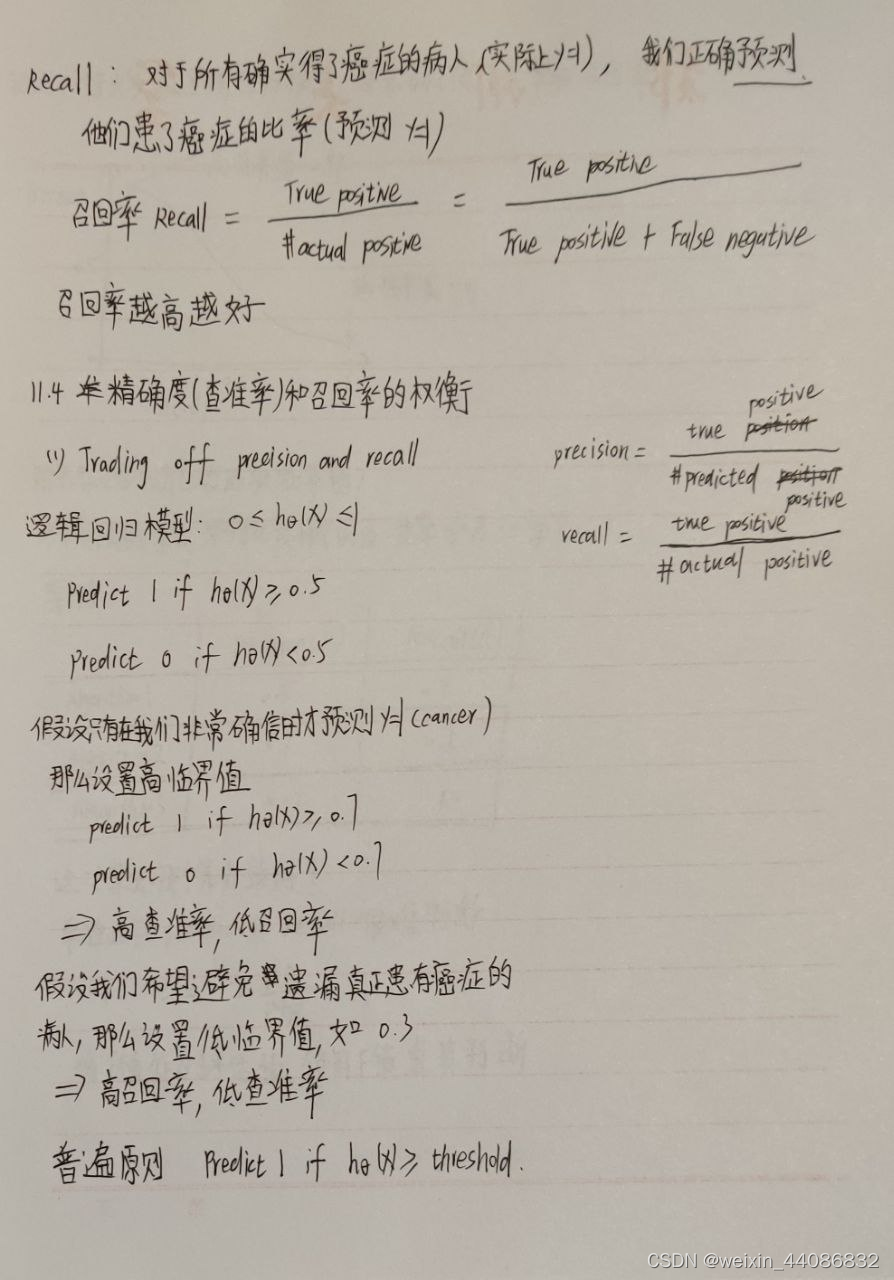 Recall： 对于所有确实得了癌症的病人（实际上y=1），我们正确预测
他们患了癌症的比率（预测 y=1）
召回率 Recall = True positive / #actual positive = True positive / True positive + False negative
召回率越高越好
11.4 精确度(查准率)和召回率的权衡
(1) Trading off precision and recall
precision = true positive / #predicted positive
逻辑回归模型: 0 ≤ hθ(x) ≤ 1
recall = true positive / #actual positive
Predict 1 if hθ(x) ≥ 0.5
Predict 0 if hθ(x) < 0.5
假设只有在我们非常确信时才预测 y=1 (cancer)
那么设置高临界值
predict 1 if hθ(x) ≥ 0.7
predict 0 if hθ(x) < 0.7
⇒ 高查准率, 低召回率
假设我们希望避免遗漏真正患有癌症的
病人, 那么设置低临界值, 如 0.3
⇒ 高召回率, 低查准率
普遍原则 Predict 1 if hθ(x) ≥ threshold.
CSDN @weixin_44086832